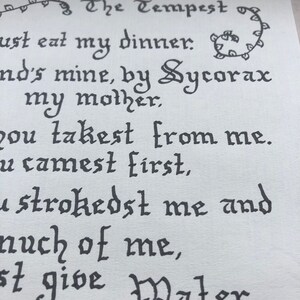 The Tempest
ust eat my dinner.
nd's mine, by Sycorax
my mother.
hou takest from me.
u camest first,
u strokedst me and
much of me,
st give Water